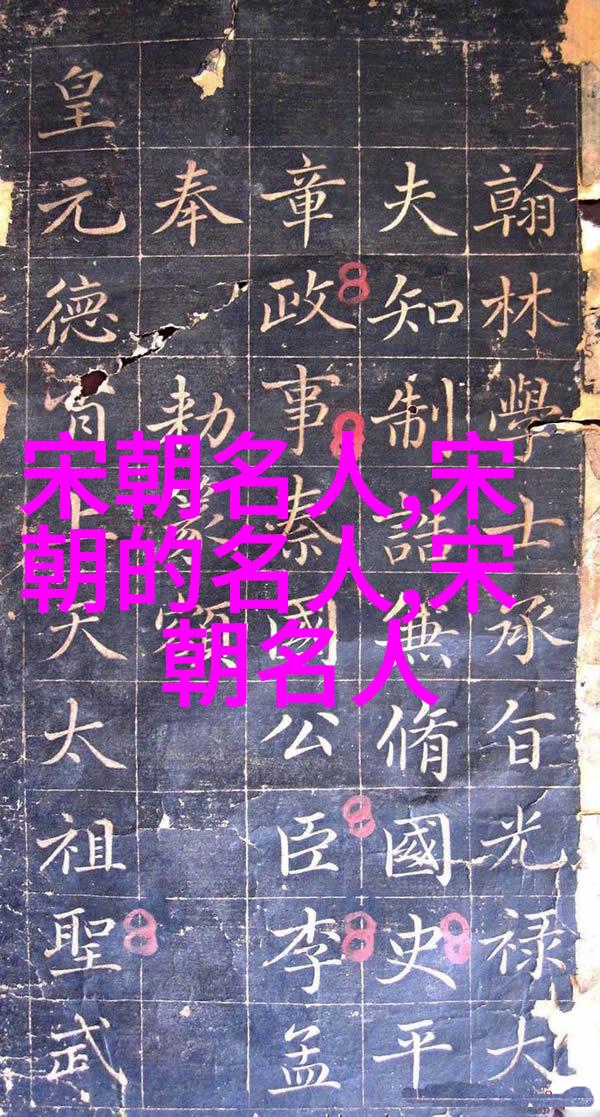 宋朝名人,宋
朝的名人,宋
朝名人
翰林學士承旨光禄大
夫知制誥兼脩國史平
章政事秦國公臣李孟
奉敕篆額
皇元德上天太祖聖武